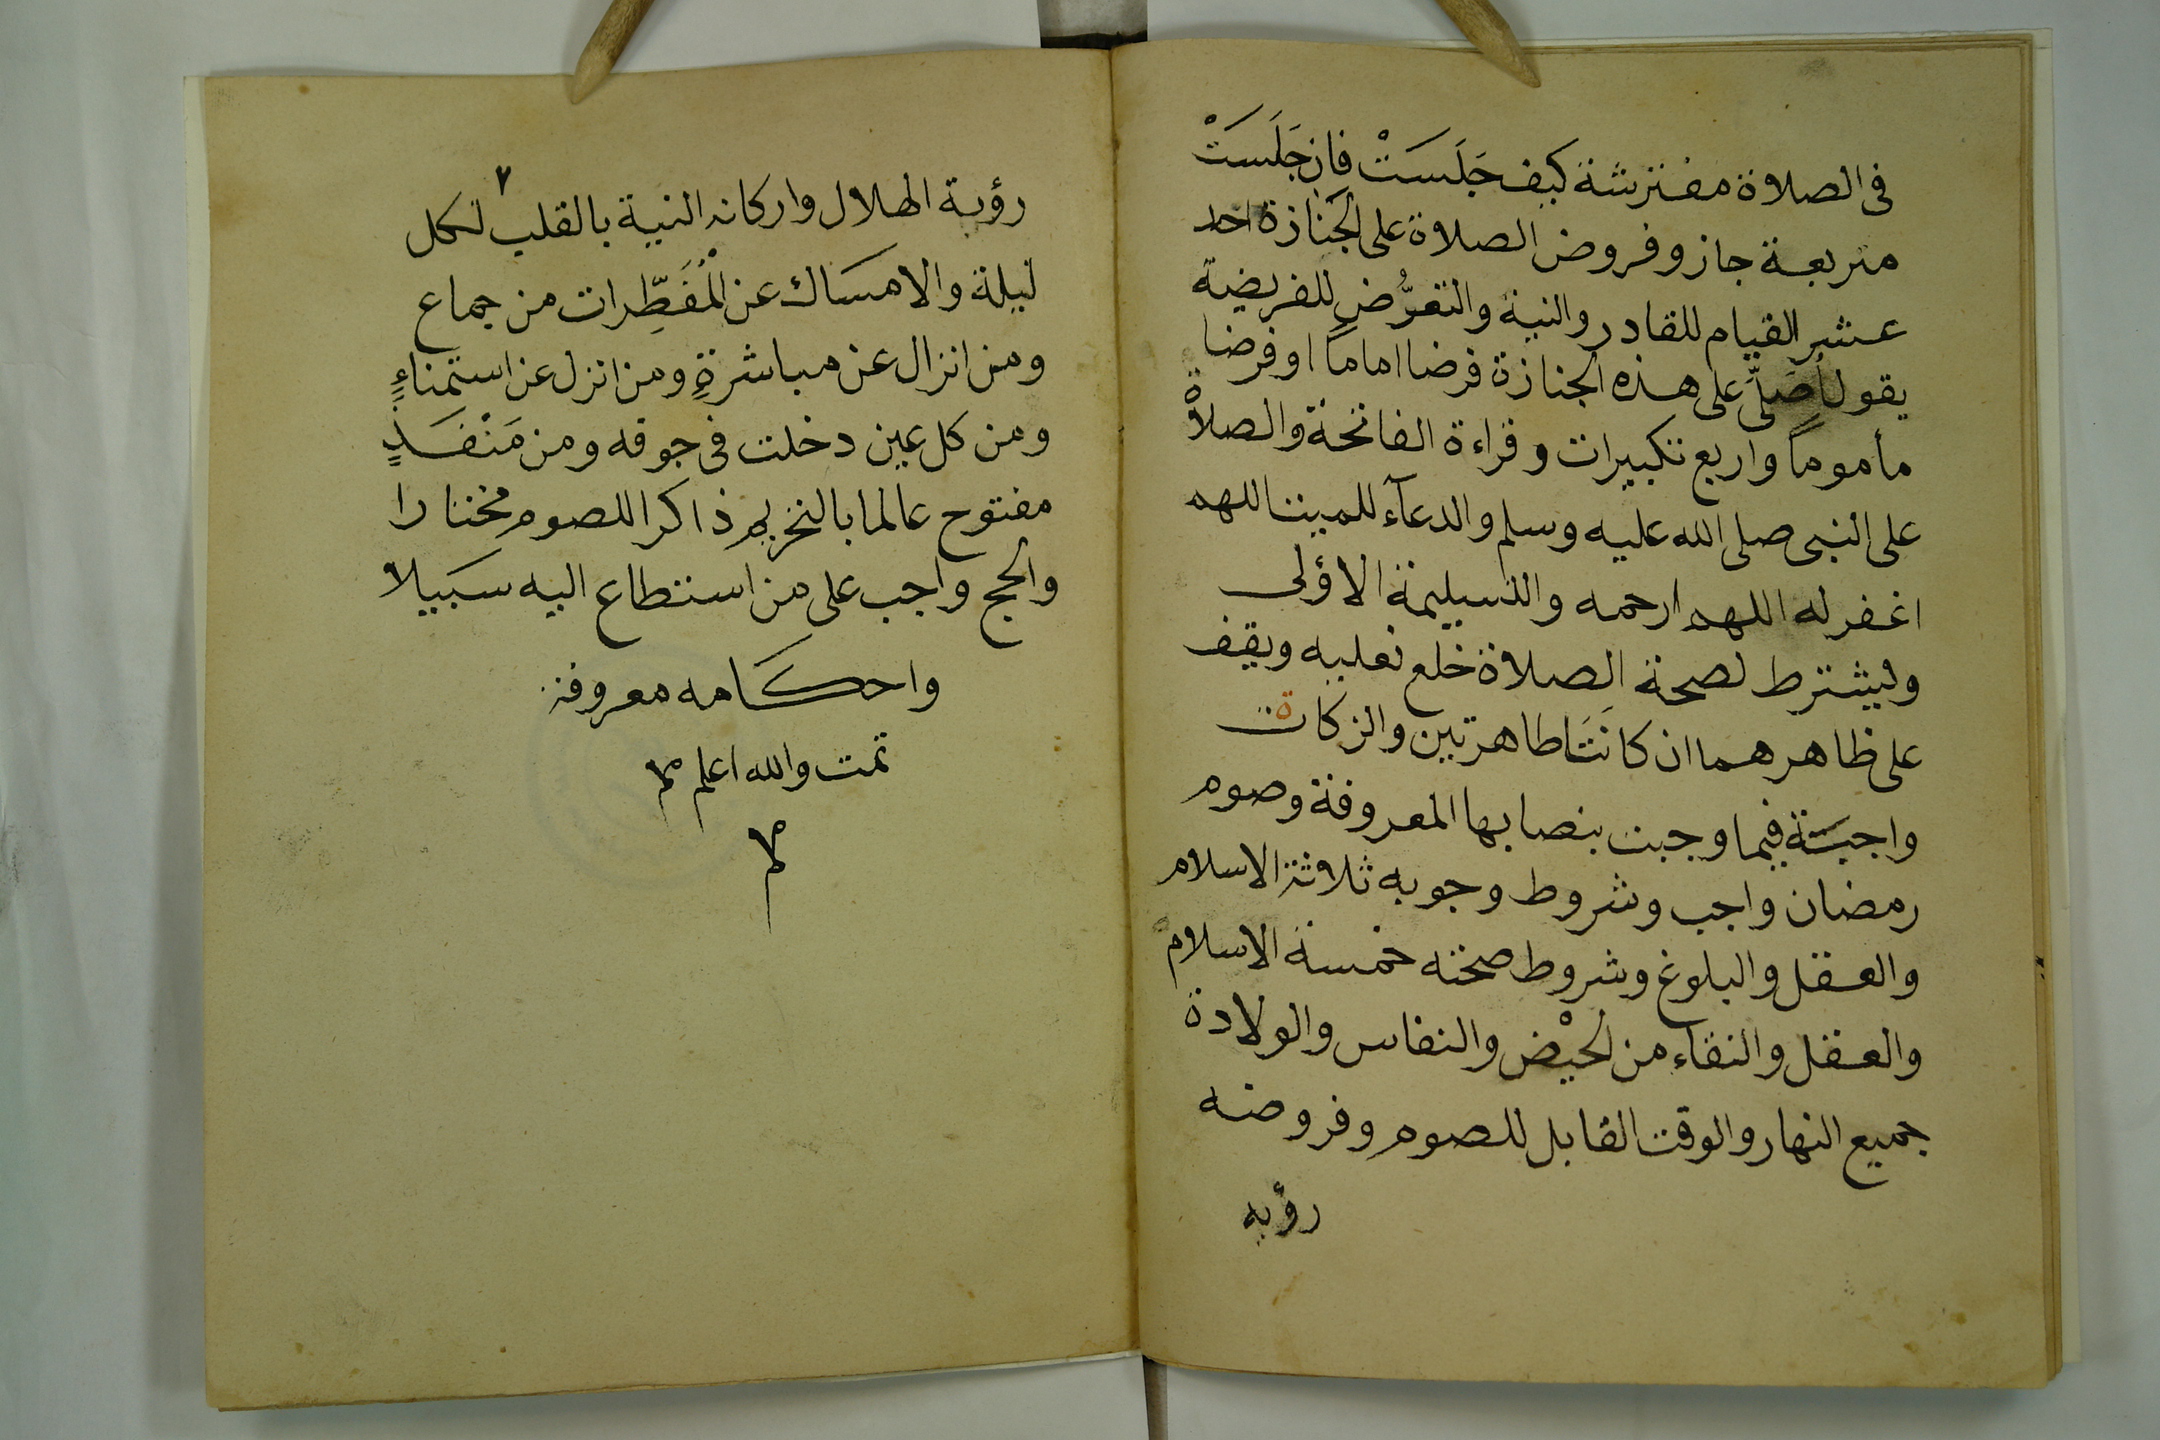 فى الصلاة مفترشة كيف جَلَسَتْ فان جَلَسَتْ
متربعة جاز وفروض الصلاة على الجَنازة احد
عشر القيام للقادر والنية والتعرُّض للفريضية
يقول أصَلّى على هذه الجنازة فرضا اماماً او فرضا
مأموماً واربع تكبيرات وقراءة الفاتحة والصلاة
على النبى صلى الله عليه وسلم والدعآء للميت اللهم
اغفر له اللهم ارحمه والتسليمة الاؤلى
وليشترط لصحة الصلاة خلع نعليه ويقف
على ظاهرهما ان كانَتَا طاهرتين والزكاة
واجبة فيما وجبت بنصابها المعروفة وصوم
رمضان واجب وشروط وجوبه ثلاثة الاسلام
والعقل والبلوغ وشروط صحته خمسة الاسلام
والعقل والنقاء من الحيْض والنفاس والولادة
جميع النهار والوقت القابل للصوم وفروضه
رؤيه
٢
رؤية الهلال واركانه النية بالقلب لكل
ليلة والامسَاك عن المُفَطِّرات من جماع
ومن انزال عن مباشرةٍ ومن انزل عن استمناءٍ
ومن كل عين دخلت فى جوفه ومن مَنْفَذٍ
مفتوح عالما بالتحريم ذاكرا للصوم مختارا
والحج واجب على من استطاع اليه سَبيلا
واحكامه معروفة
تمت والله اعلم م
م